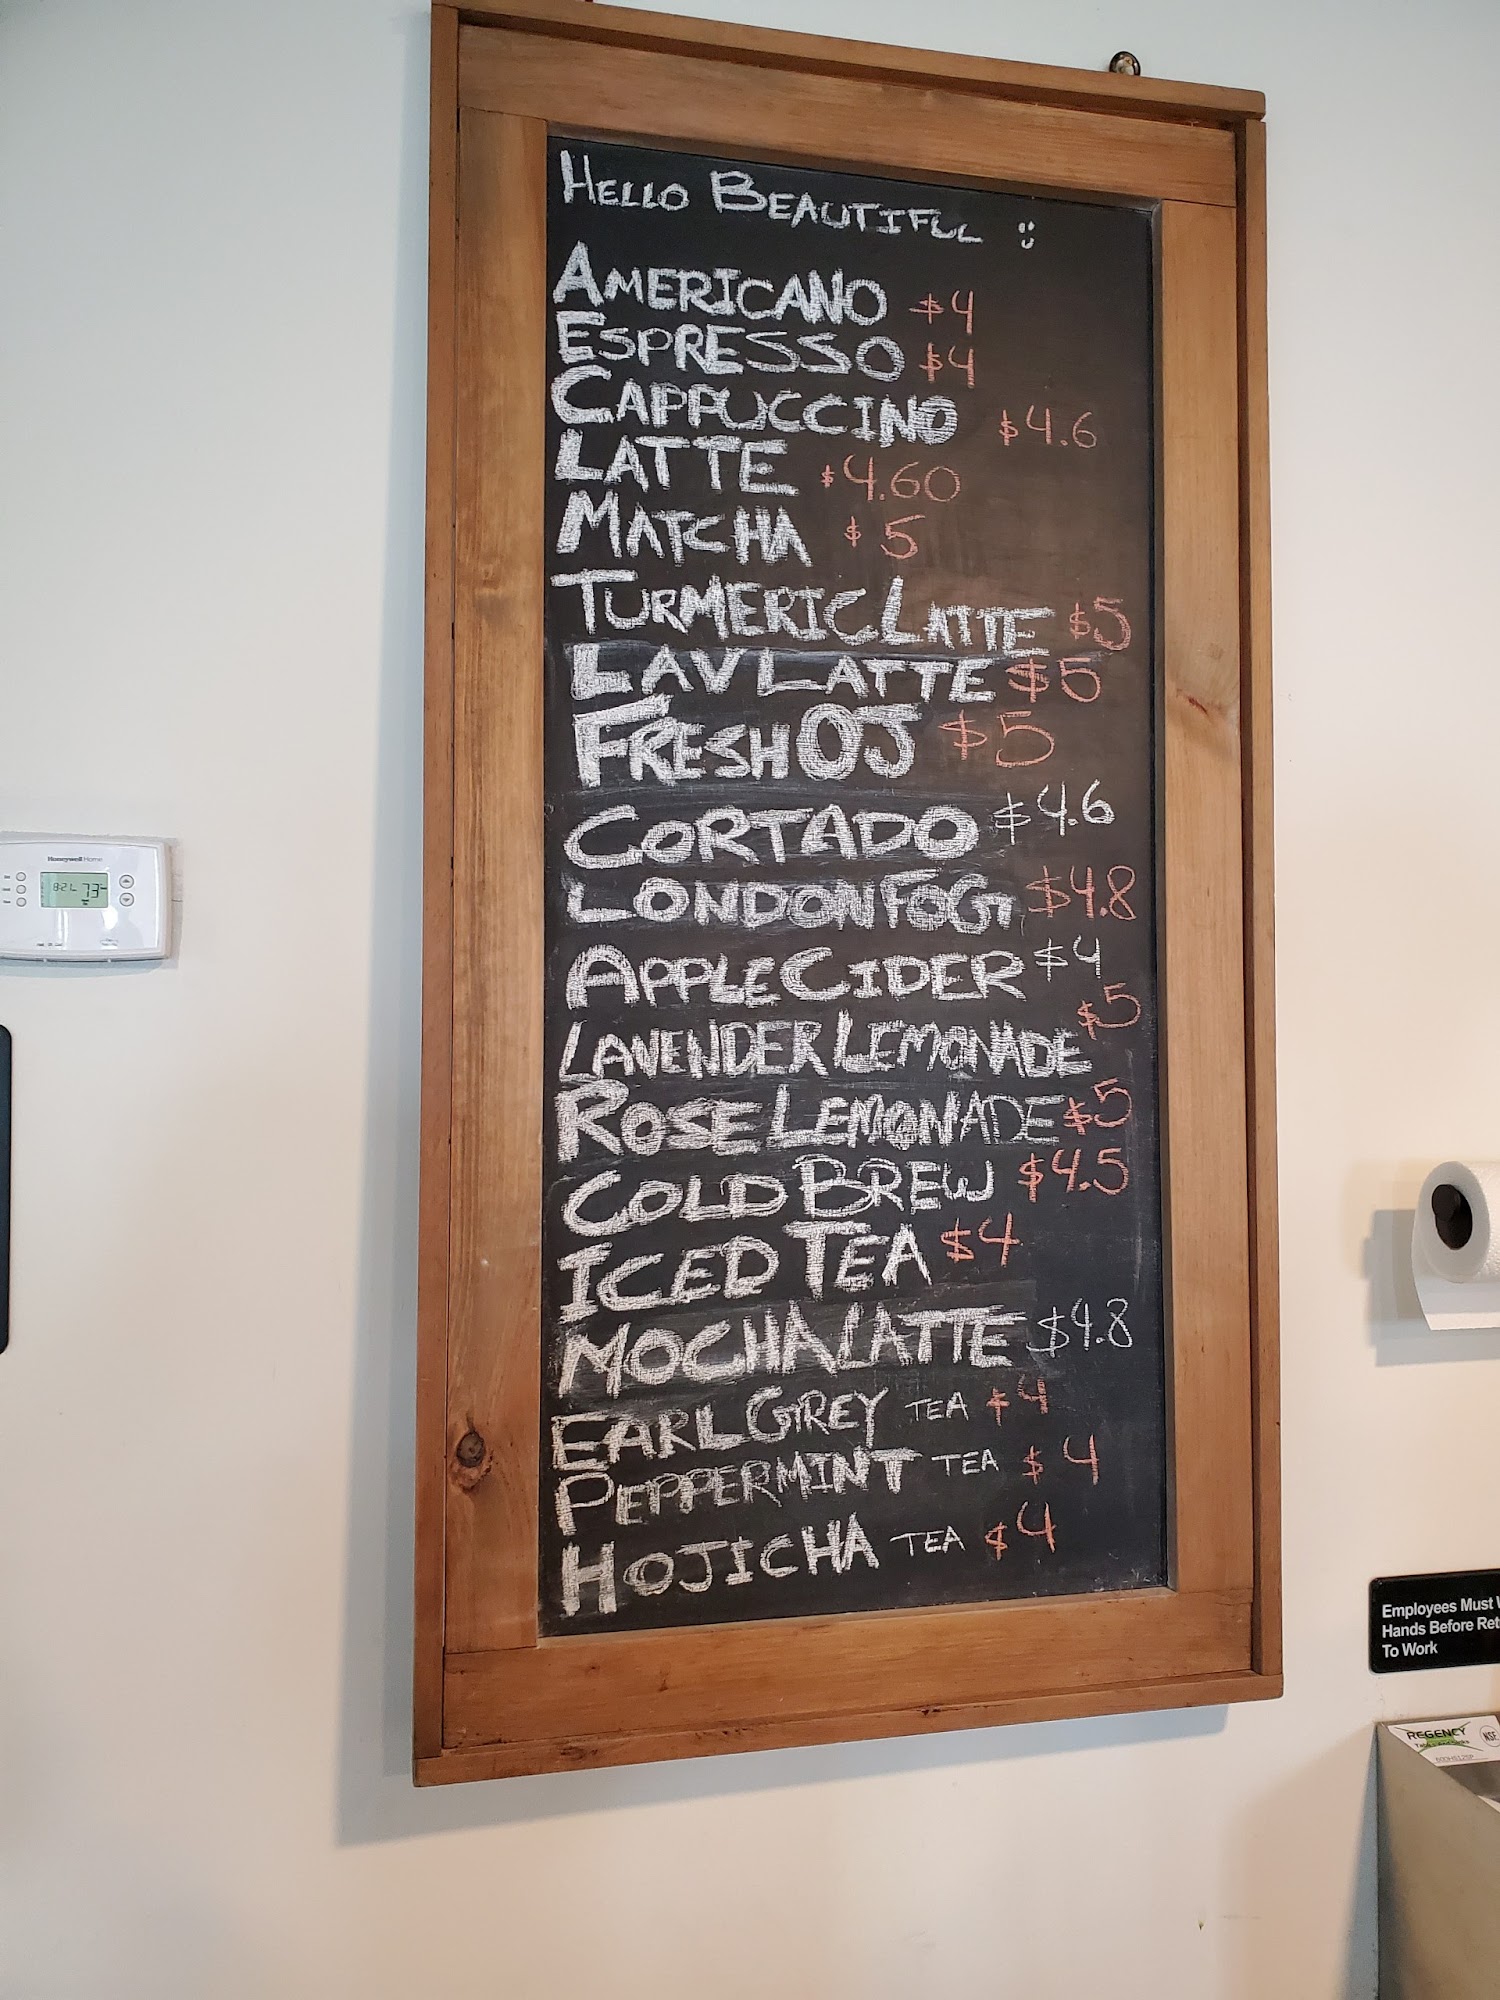 HELLO BEAUTIFUL :)
AMERICANO $4
ESPRESSO $4
CAPPUCCINO $4.6
LATTE $4.60
MATCHA $5
TURMERIC LATTE $5
LAV LATTE $5
FRESH OJ $5
CORTADO $4.6
LONDON FOG $4.8
APPLE CIDER $4
LAVENDER LEMONADE $5
ROSE LEMONADE $5
COLD BREW $4.5
ICED TEA $4
MOCHA LATTE $4.8
EARL GREY TEA $4
PEPPERMINT TEA $4
HOJICHA TEA $4
Honeywell Home
8:21 73
Employees Must
Hands Before
To Work
REGENCY
NSF